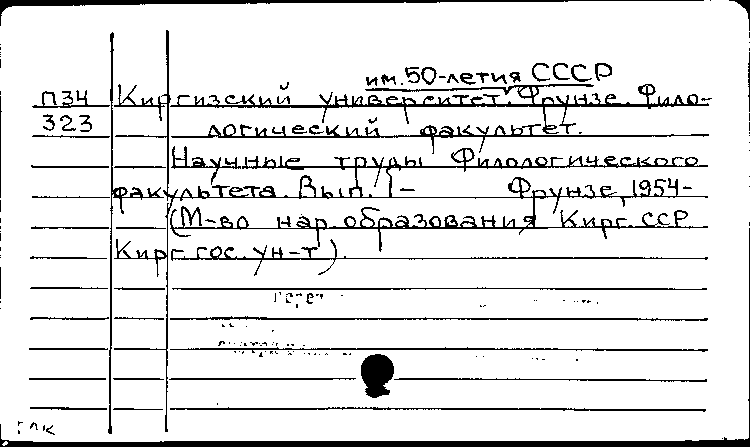 им. 50-летия СССР
П34 Киргизский университет. Фрунзе. Фило-
323 логический факультет.
Научные труды Филологического
факультета. Вып. 1- Фрунзе, 1954-
(М-во нар. образования Кирг. ССР
Кирг. гос. ун-т).